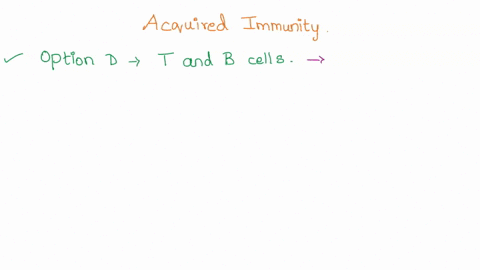 Acquired Immunity.
✓ Option D → T and B cells. →